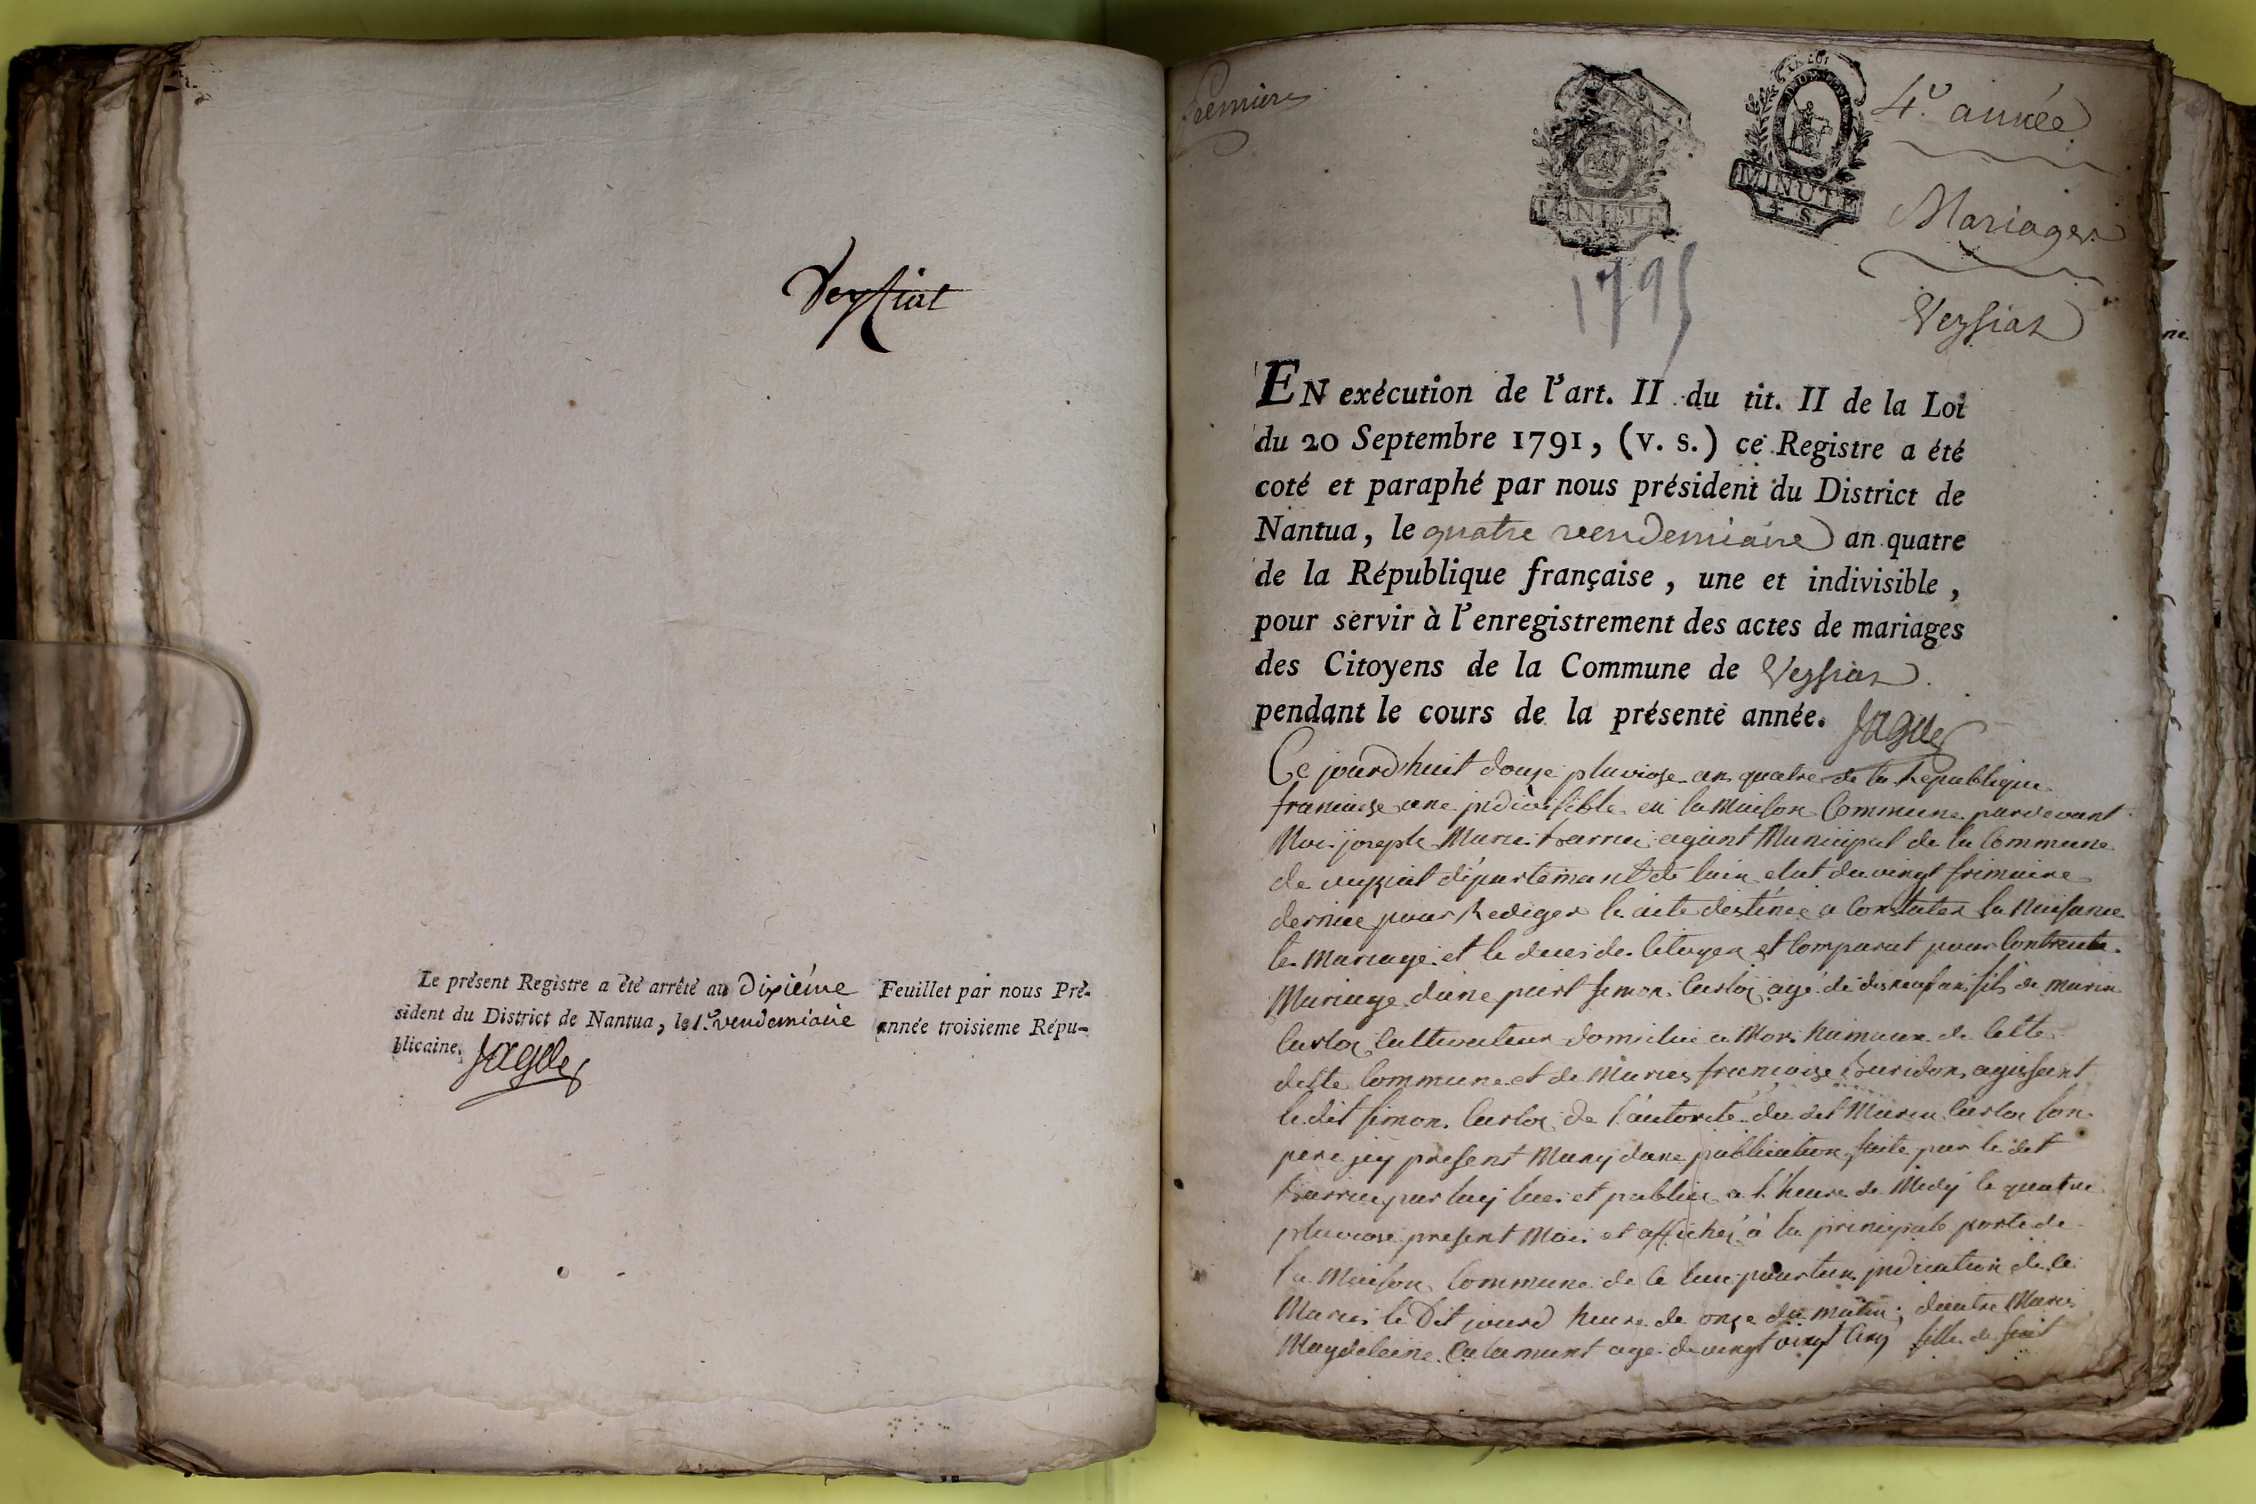 Veyssiat
Le présent Registre a été arrêté au Dixiéme Feuillet par nous Pré-
sident du District de Nantua, le 1.er vendemiaire année troisieme Répu-
blicaine.
premiere
MINUTE
4 S.
4.e année
Mariages
Veyssiat
1795
EN exécution de l'art. II du tit. II de la Loi
du 20 Septembre 1791, (v. s.) ce Registre a été
coté et paraphé par nous président du District de
Nantua, le quatre vendemiaire an quatre
de la République française, une et indivisible,
pour servir à l'enregistrement des actes de mariages
des Citoyens de la Commune de Veyssiat
pendant le cours de la présente année.
Ce jourd'huit douze pluviose an quatre de la Republique
francaise une jndivisible en la Maison Commune pardevant
Moi joseph Marie agant Municipal de la Commune
de veyziat département de lain elut du vingt frimaire
dernier pour Rediger le acte destinée a Constater la Naisance
le Mariage et le deces des Citoyen et Comparut pour Contracter
Mariage dune part simon Carloz agé de disneuf ans fils de marin
Carloz Cultivateur domicilié a Mons hameaux de Cette
dette Commune et de Maries francoise agissant
le dit simon Carloz de l'autorité du dit Marin Carloz son
pere jcy present Muny dune publication faite par le dit
par luy lue et publié a l'heure de Midy le quatre
pluviose present Mois et affiché à la principale porte de
la Maison Commune de ce lieu jndication de ce
Maries le Dit jourd heure de onze du matin; dautre Maries
Magdeleine Calamant age de vingt vingt Cinq fille de fut